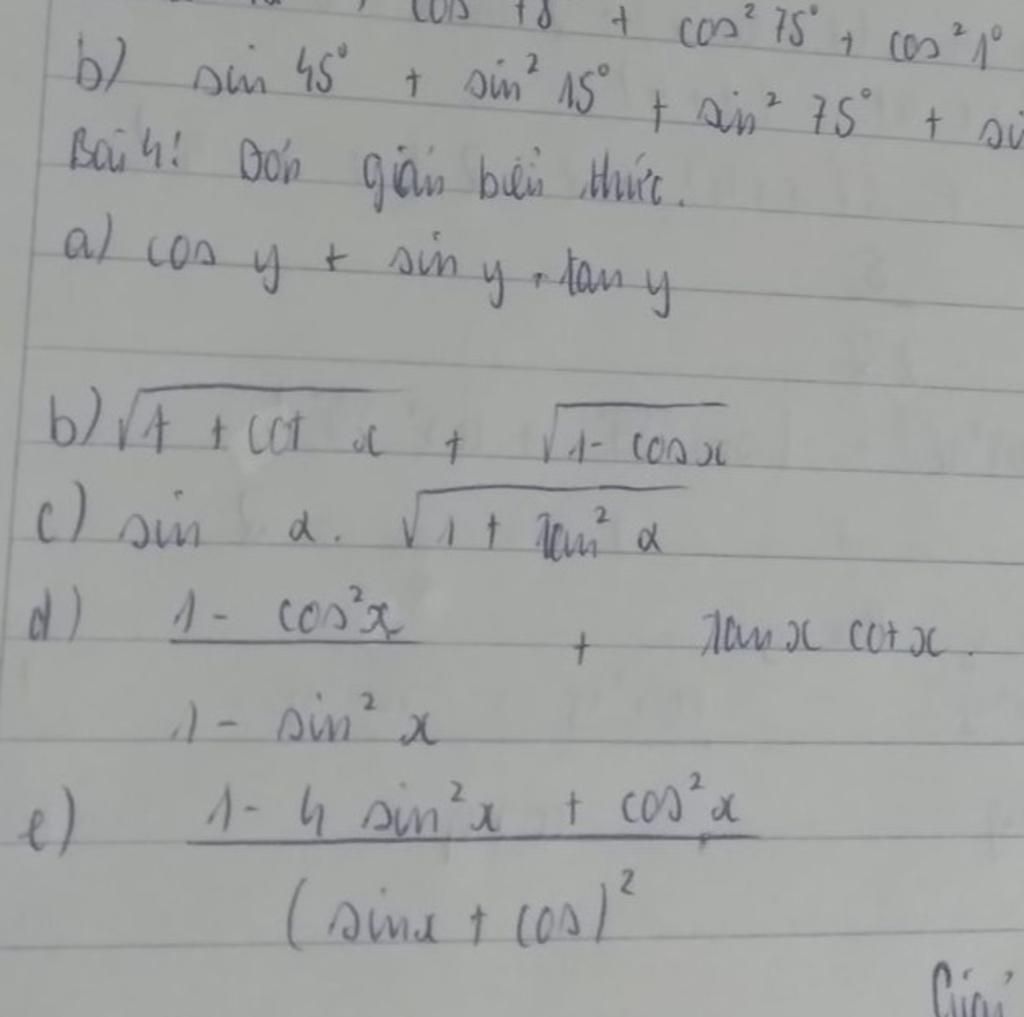 cos² 75° + cos² 1°
b) sin 45° + sin² 15° + sin² 75° +
Bài 4: Đơn giản biểu thức.
a) cos y + sin y . tan y
b) √(1 + cot x) + √(1 - cos x)
c) sin α . √(1 + tan² α)
d) (1 - cos²x) / (1 - sin² x) + tan x cot x.
e) (1 - 4 sin²x + cos²x) / (sinx + cos)²